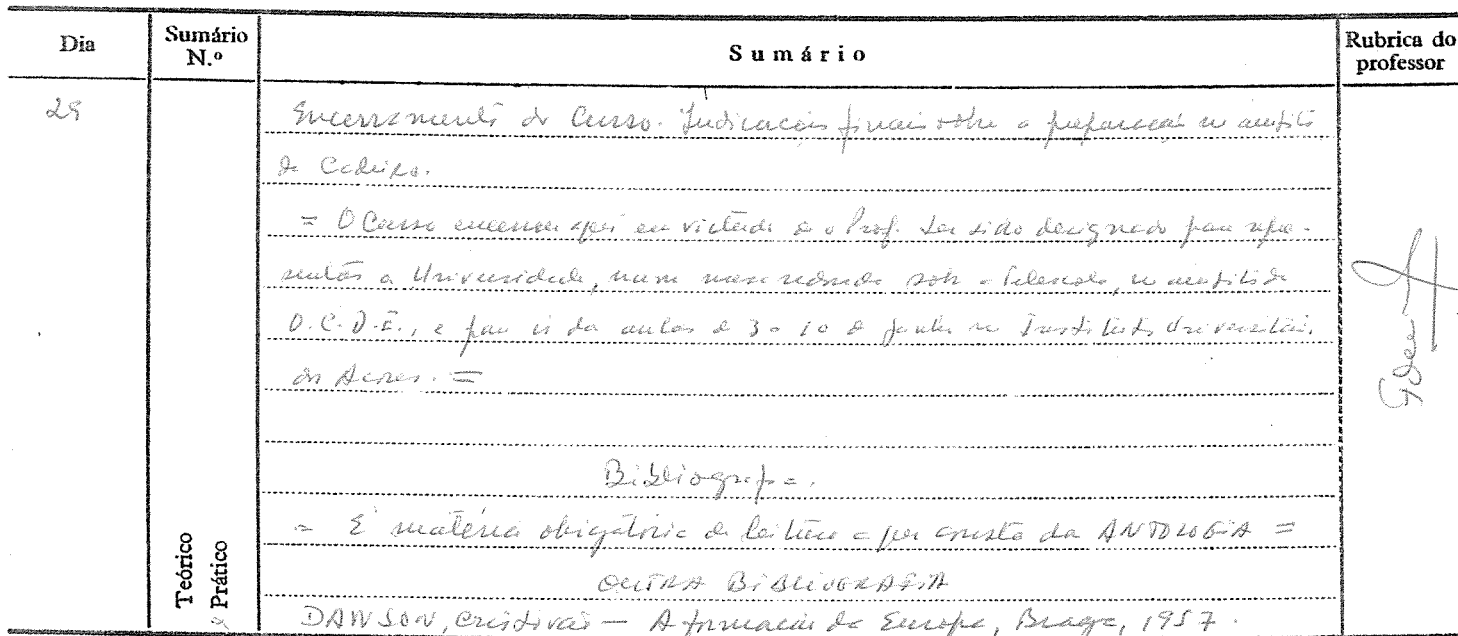 Dia
Sumário N.º
Sumário
Rubrica do professor
29
Encerramento do Curso. Indicações finais sobre a preparação no âmbito
da Cadeira.
= O Curso encerra aqui em virtude de o Prof. ter sido designado para repre-
sentar a Universidade, numa mesa redonda sobre a Telescola, no âmbito da
O.C.D.E., e para ir dar aulas de 3 a 10 de Junho no Instituto Universitário
dos Açores. =
Bibliografia.
= É matéria obrigatória de leitura a que consta da ANTOLOGIA =
OUTRA BIBLIOGRAFIA
DAWSON, Cristóvão — A formação da Europa, Braga, 1957.
Teórico
Prático